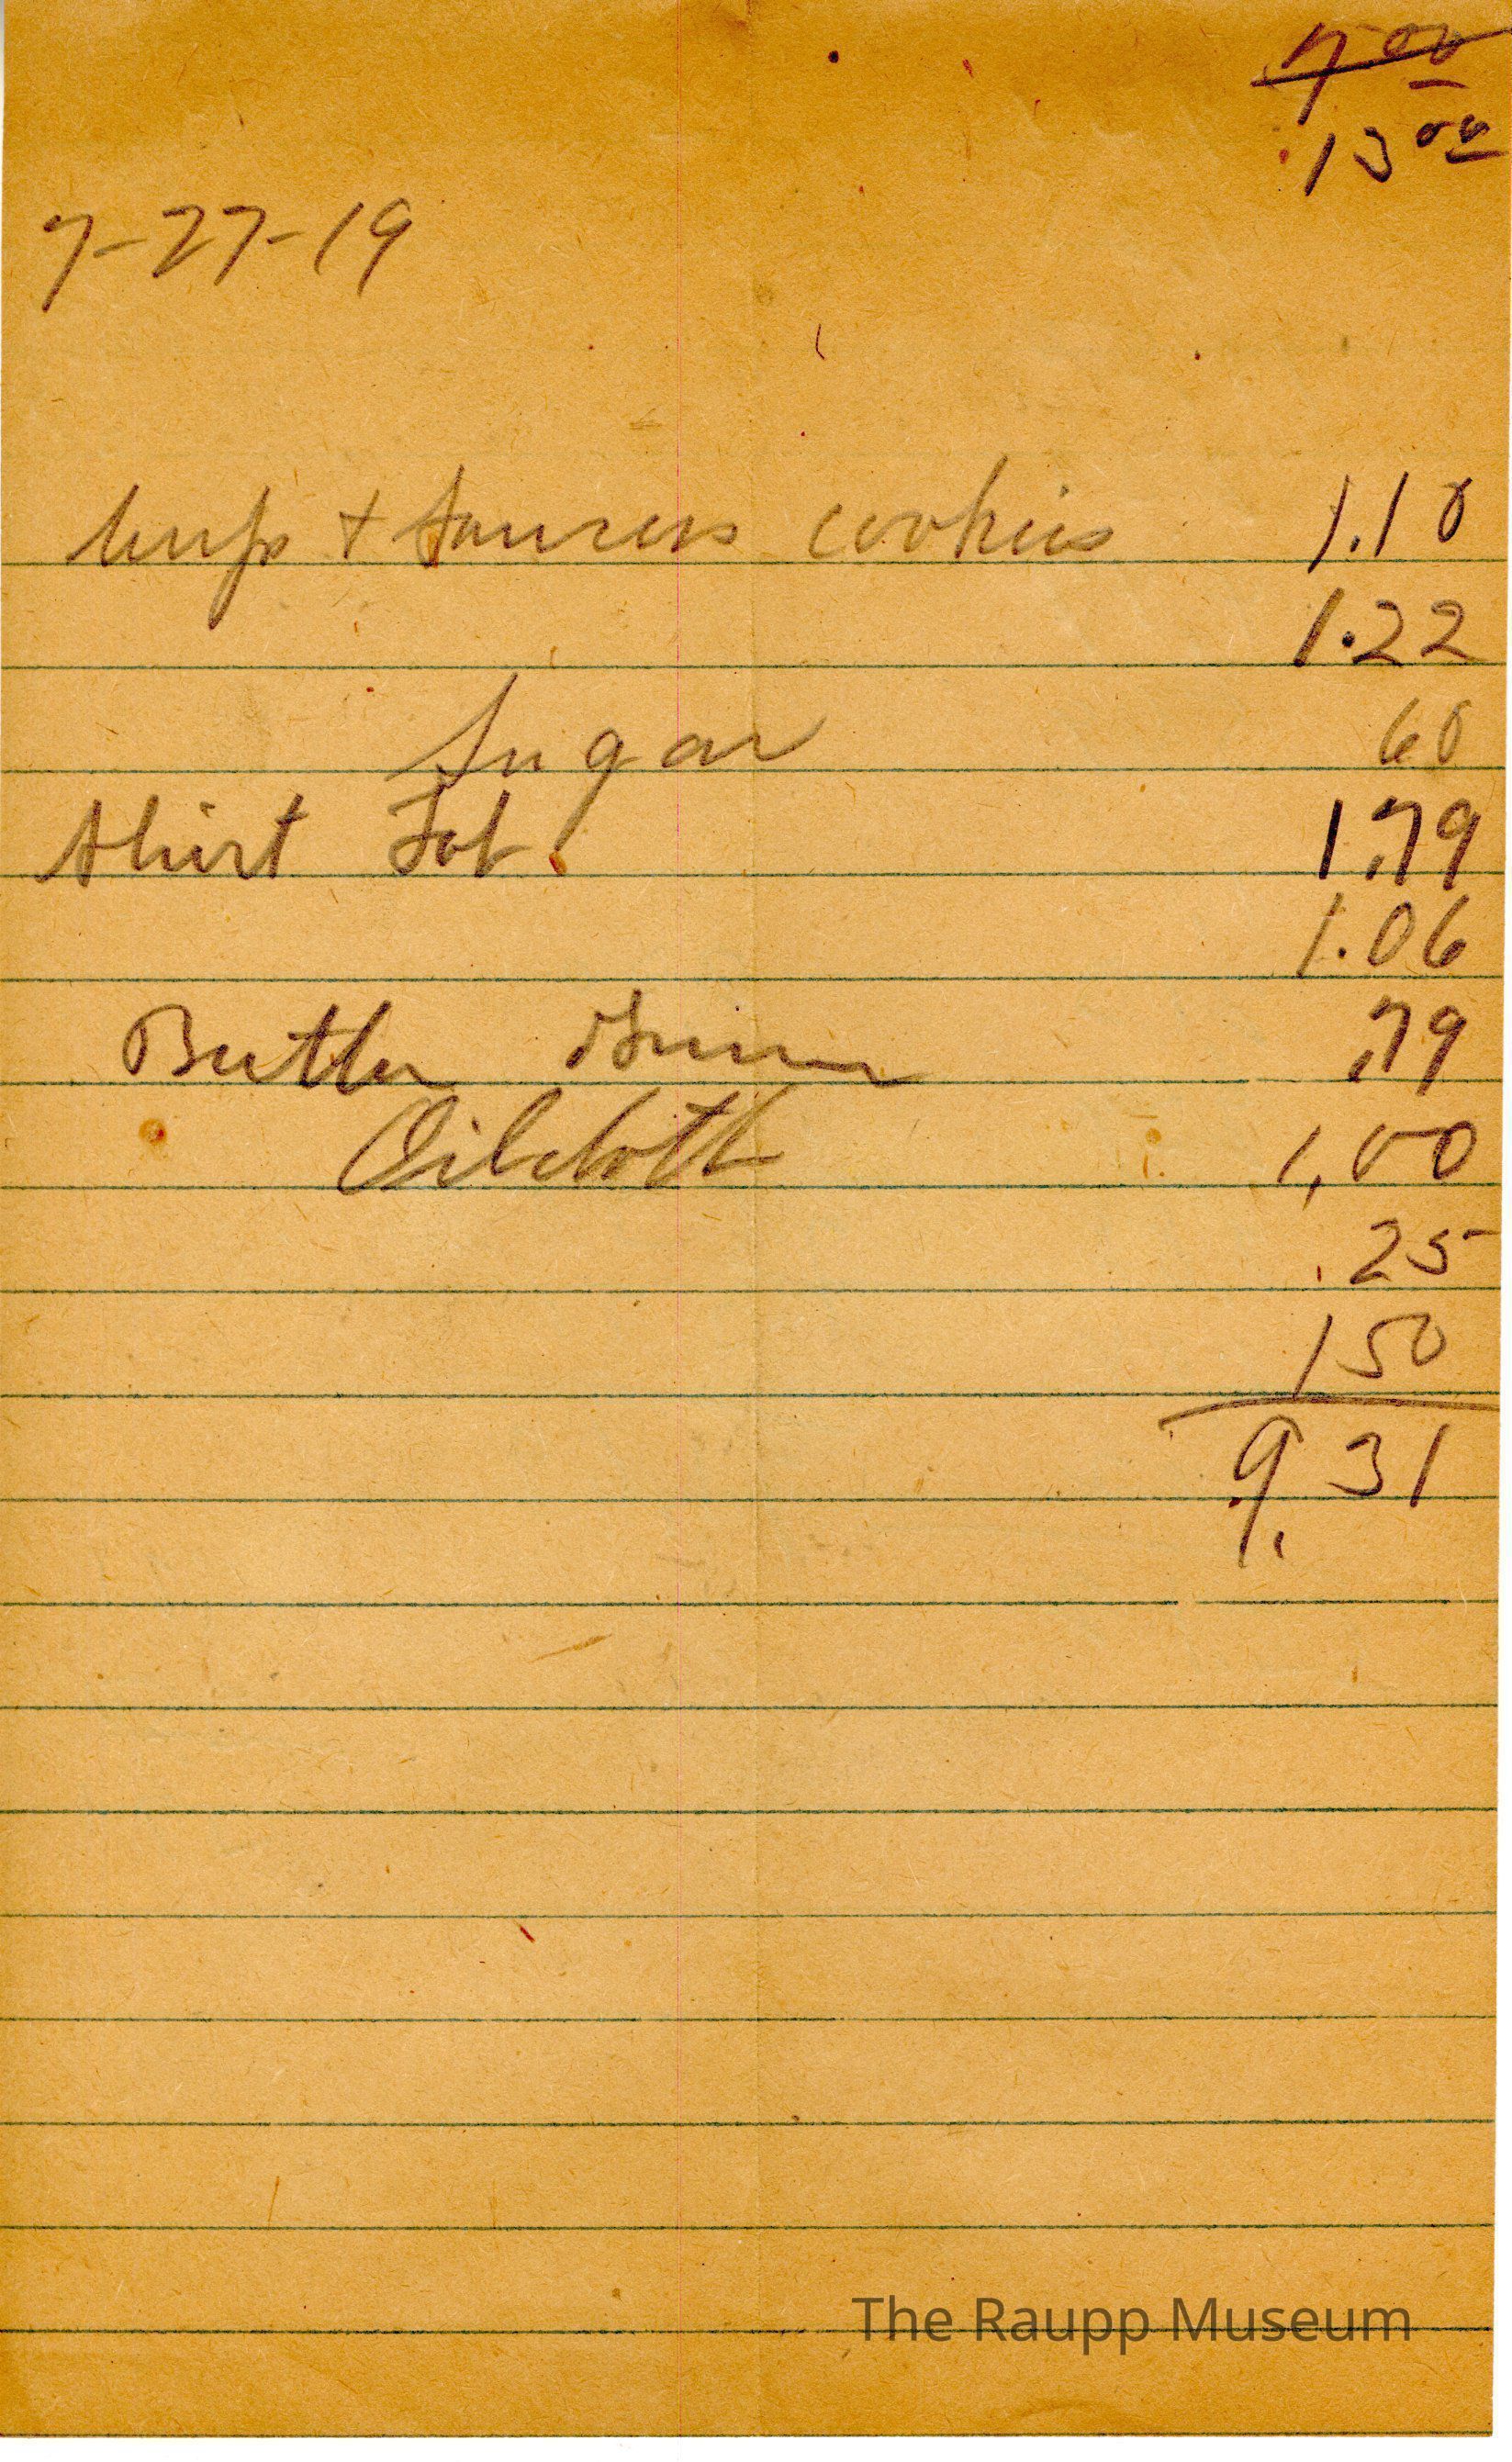 7 00
13 00
7-27-19
Cups + Saucers cookies 1.10
1.22
Sugar 60
Shirt Tob. 1.79
1.06
Butter .79
Oilcloth 1,00
.25
1 50
9.31
The Raupp Museum